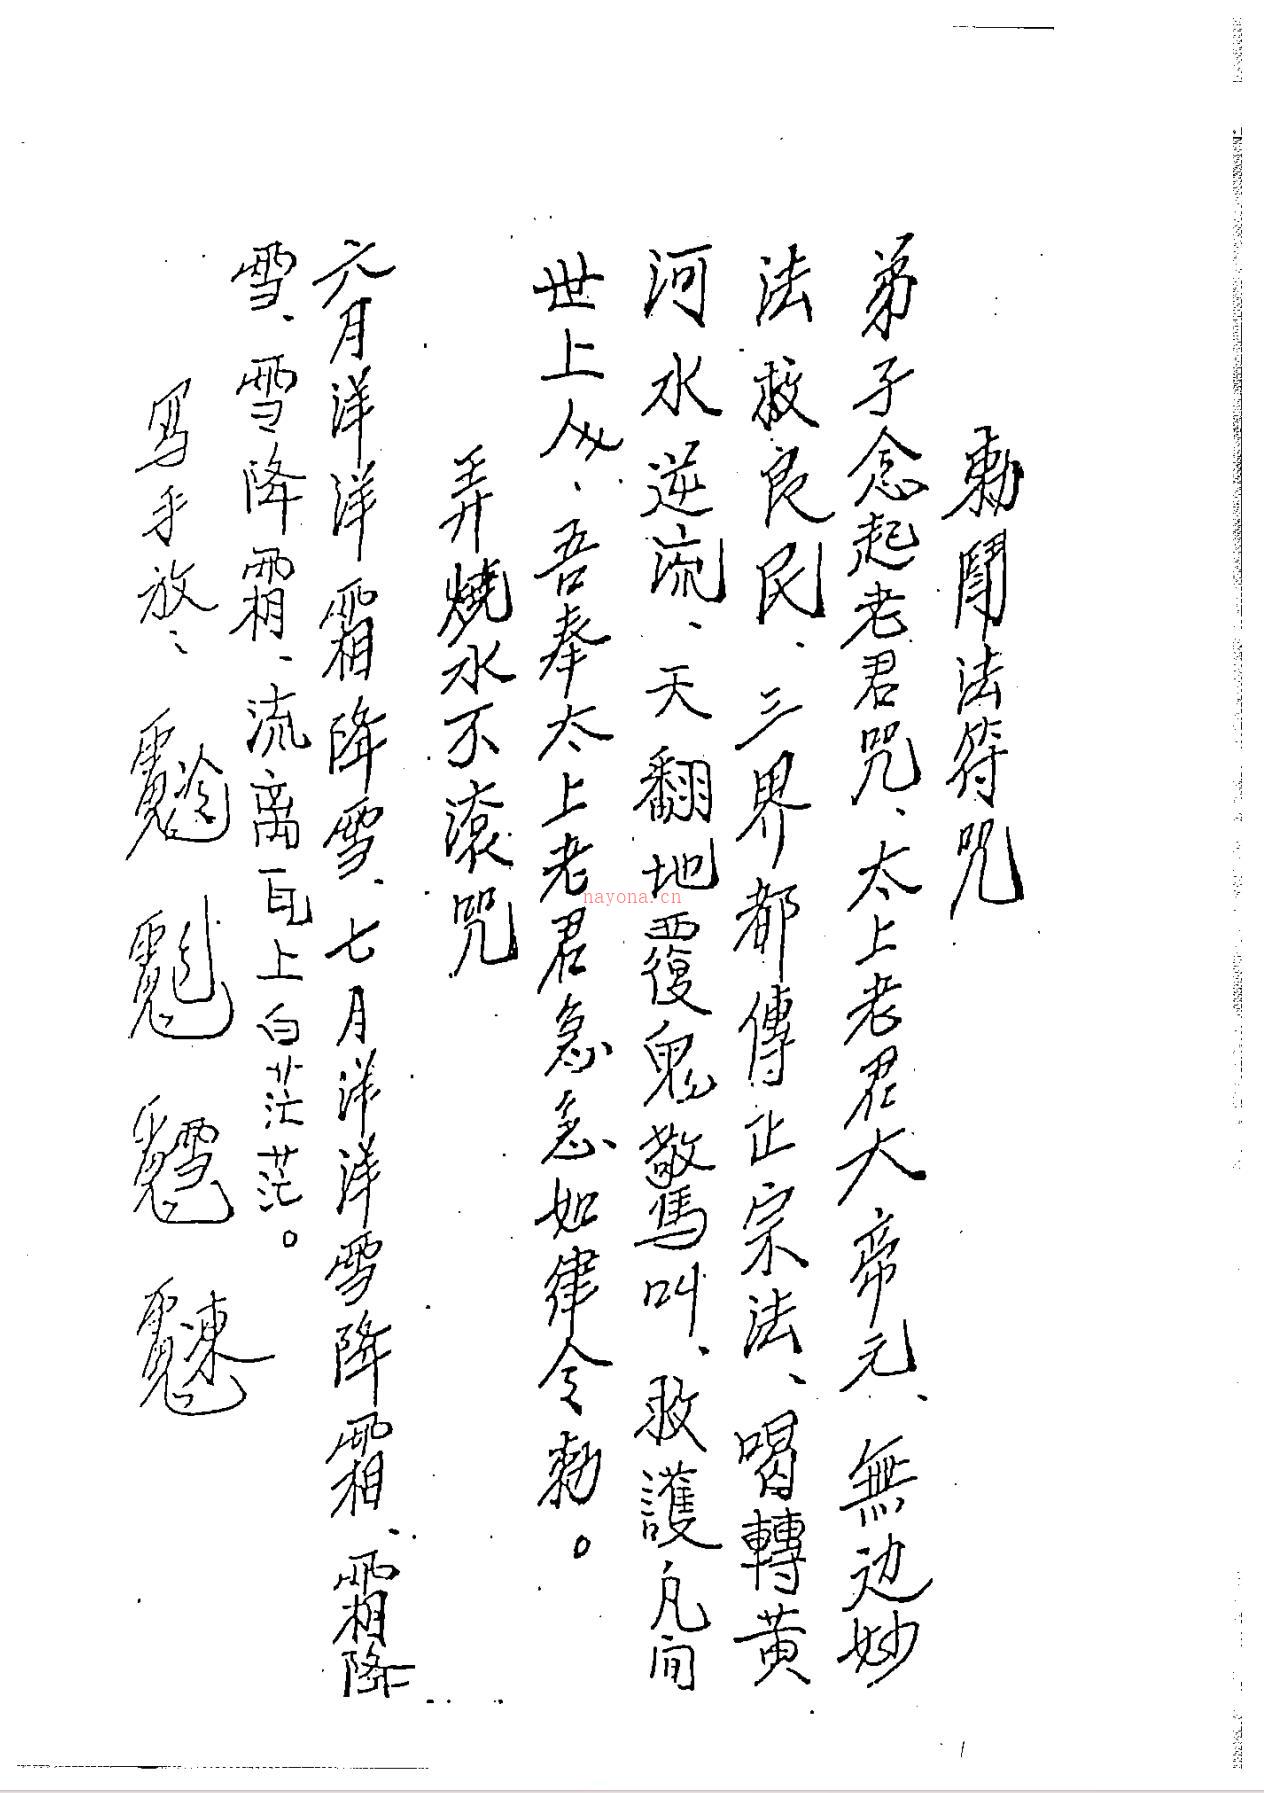 勅鬧法符咒
弟子念起老君咒、太上老君大帝元、無边妙
法救良民、三界都傳正宗法、喝轉黄
河水逆流、天翻地覆鬼驚叫、救護凡间
世上人、吾奉太上老君急急如律令勅。
弄燒水不滚咒
六月洋洋霜降雪、七月洋洋雪降霜、霜降
雪、雪降霜、流离瓦上白茫茫。
写手放、
nayona.cn
1